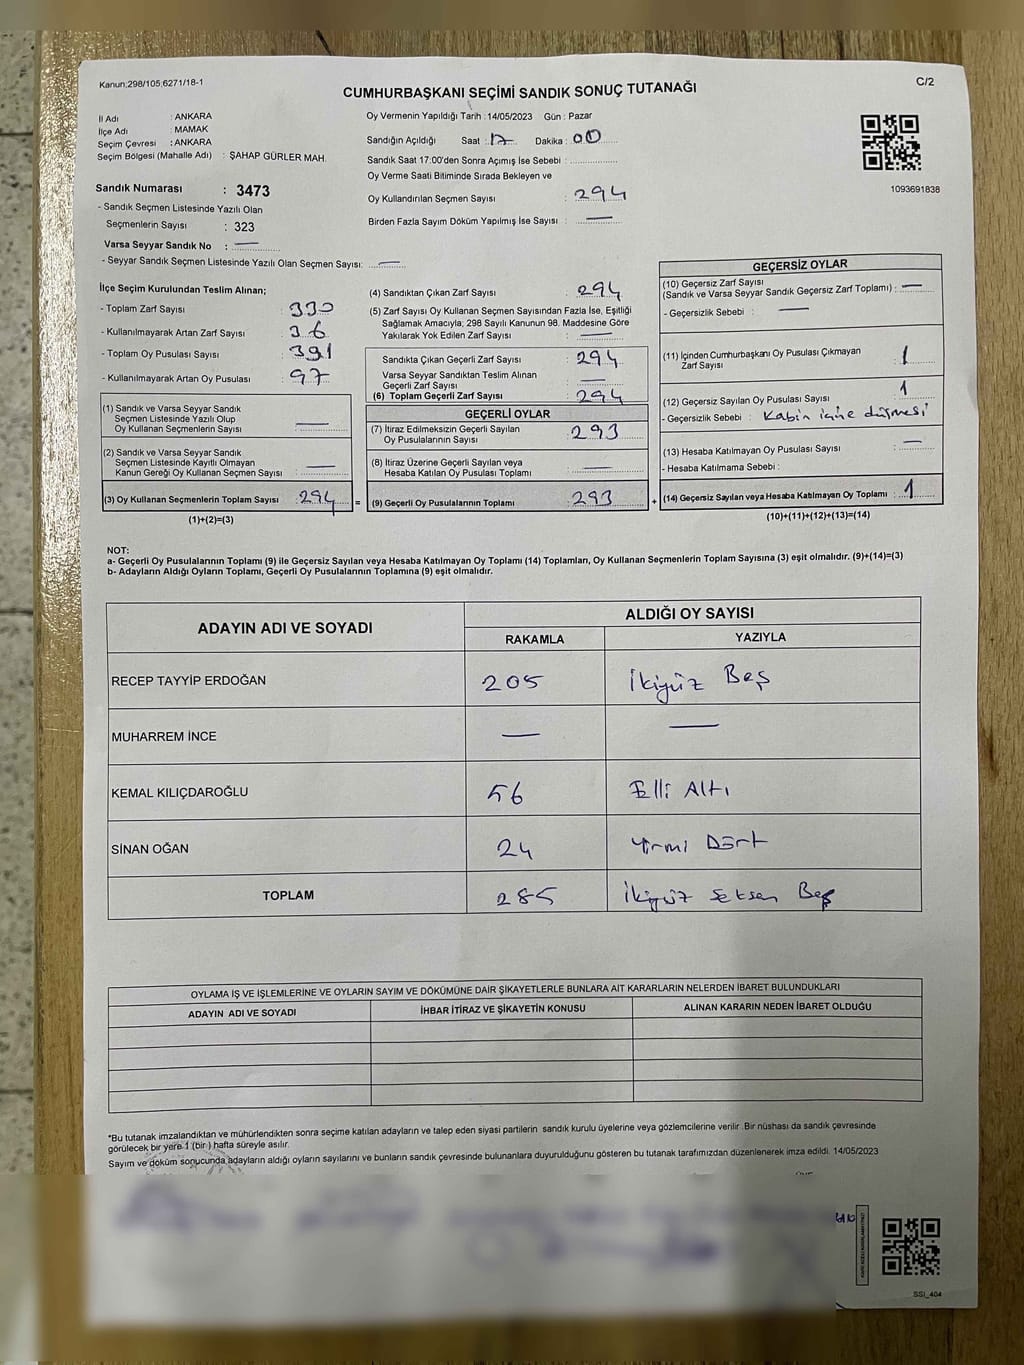 Kanun;298/105;6271/18-1
C/2
CUMHURBAŞKANI SEÇİMİ SANDIK SONUÇ TUTANAĞI
İl Adı : ANKARA
İlçe Adı : MAMAK
Seçim Çevresi : ANKARA
Seçim Bölgesi (Mahalle Adı) : ŞAHAP GÜRLER MAH.
Sandık Numarası : 3473
- Sandık Seçmen Listesinde Yazılı Olan
Seçmenlerin Sayısı : 323
Varsa Seyyar Sandık No : —
- Seyyar Sandık Seçmen Listesinde Yazılı Olan Seçmen Sayısı: —
Oy Vermenin Yapıldığı Tarih :14/05/2023 Gün : Pazar
Sandığın Açıldığı Saat : 17 Dakika : 00
Sandık Saat 17:00'den Sonra Açımış İse Sebebi :
Oy Verme Saati Bitiminde Sırada Bekleyen ve
Oy Kullandırılan Seçmen Sayısı : 294
Birden Fazla Sayım Döküm Yapılmış İse Sayısı : —
1093691838
İlçe Seçim Kurulundan Teslim Alınan;
- Toplam Zarf Sayısı : 330
- Kullanılmayarak Artan Zarf Sayısı : 36
- Toplam Oy Pusulası Sayısı : 391
- Kullanılmayarak Artan Oy Pusulası : 97
(1) Sandık ve Varsa Seyyar Sandık
Seçmen Listesinde Yazılı Olup
Oy Kullanan Seçmenlerin Sayısı : —
(2) Sandık ve Varsa Seyyar Sandık
Seçmen Listesinde Kayıtlı Olmayan
Kanun Gereği Oy Kullanan Seçmen Sayısı : —
(3) Oy Kullanan Seçmenlerin Toplam Sayısı : 294 =
(1)+(2)=(3)
(4) Sandıktan Çıkan Zarf Sayısı : 294
(5) Zarf Sayısı Oy Kullanan Seçmen Sayısından Fazla İse, Eşitliği
Sağlamak Amacıyla; 298 Sayılı Kanunun 98. Maddesine Göre
Yakılarak Yok Edilen Zarf Sayısı : —
Sandıkta Çıkan Geçerli Zarf Sayısı : 294
Varsa Seyyar Sandıktan Teslim Alınan
Geçerli Zarf Sayısı : —
(6) Toplam Geçerli Zarf Sayısı : 294
GEÇERLİ OYLAR
(7) İtiraz Edilmeksizin Geçerli Sayılan
Oy Pusulalarının Sayısı : 293
(8) İtiraz Üzerine Geçerli Sayılan veya
Hesaba Katılan Oy Pusulası Toplamı : —
(9) Geçerli Oy Pusulalarının Toplamı : 293 +
GEÇERSİZ OYLAR
(10) Geçersiz Zarf Sayısı
(Sandık ve Varsa Seyyar Sandık Geçersiz Zarf Toplamı) : —
- Geçersizlik Sebebi : —
(11) İçinden Cumhurbaşkanı Oy Pusulası Çıkmayan
Zarf Sayısı : 1
(12) Geçersiz Sayılan Oy Pusulası Sayısı : 1
- Geçersizlik Sebebi : Kabin içine düşmesi
(13) Hesaba Katılmayan Oy Pusulası Sayısı : —
- Hesaba Katılmama Sebebi :
(14) Geçersiz Sayılan veya Hesaba Katılmayan Oy Toplamı : 1
(10)+(11)+(12)+(13)=(14)
NOT:
a- Geçerli Oy Pusulalarının Toplamı (9) ile Geçersiz Sayılan veya Hesaba Katılmayan Oy Toplamı (14) Toplamları, Oy Kullanan Seçmenlerin Toplam Sayısına (3) eşit olmalıdır. (9)+(14)=(3)
b- Adayların Aldığı Oyların Toplamı, Geçerli Oy Pusulalarının Toplamına (9) eşit olmalıdır.
ADAYIN ADI VE SOYADI
ALDIĞI OY SAYISI
RAKAMLA YAZIYLA
RECEP TAYYİP ERDOĞAN 205 İkiyüz Beş
MUHARREM İNCE — —
KEMAL KILIÇDAROĞLU 56 Elli Altı
SİNAN OĞAN 24 Yirmi Dört
TOPLAM 285 İkiyüz Seksen Beş
OYLAMA İŞ VE İŞLEMLERİNE VE OYLARIN SAYIM VE DÖKÜMÜNE DAİR ŞİKAYETLERLE BUNLARA AİT KARARLARIN NELERDEN İBARET BULUNDUKLARI
ADAYIN ADI VE SOYADI İHBAR İTİRAZ VE ŞİKAYETİN KONUSU ALINAN KARARIN NEDEN İBARET OLDUĞU
*Bu tutanak imzalandıktan ve mühürlendikten sonra seçime katılan adayların ve talep eden siyasi partilerin sandık kurulu üyelerine veya gözlemcilerine verilir. Bir nüshası da sandık çevresinde
görülecek bir yere 1 (bir ) hafta süreyle asılır.
Sayım ve döküm sonucunda adayların aldığı oyların sayılarını ve bunların sandık çevresinde bulunanlara duyurulduğunu gösteren bu tutanak tarafımızdan düzenlenerek imza edildi. 14/05/2023
SSI_404